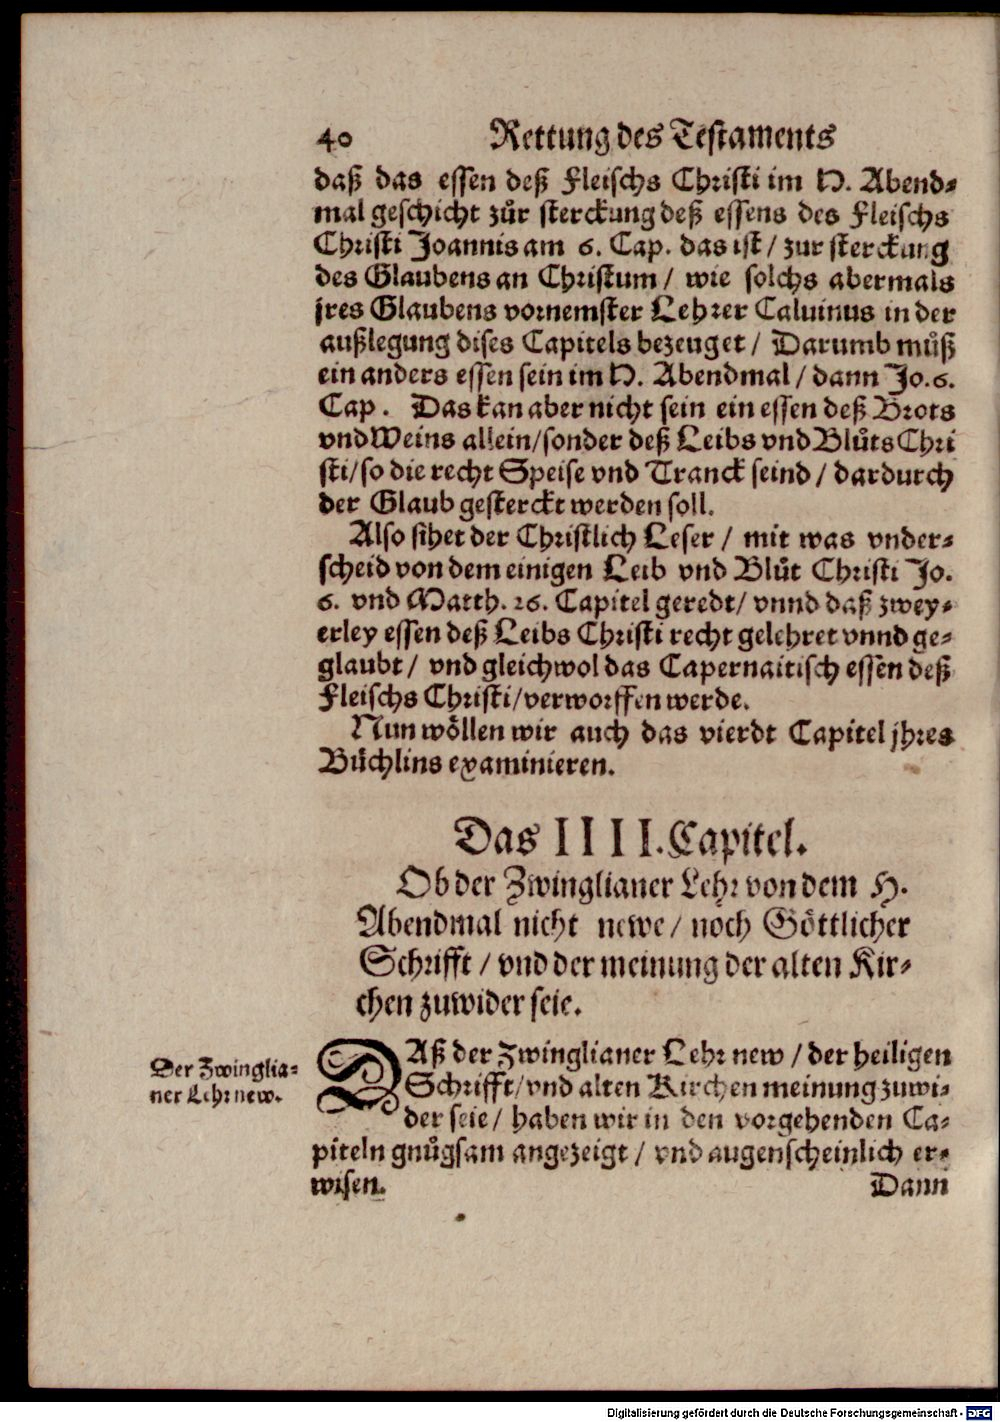 40 Rettung des Testaments
daß das essen deß Fleischs Christi im H. Abend-
mal geschicht zůr sterckung deß essens des Fleischs
Christi Joannis am 6. Cap. das ist / zur sterckung
des Glaubens an Christum / wie solchs abermals
jres Glaubens vornemster Lehrer Caluinus in der
außlegung dises Capitels bezeuget / Darumb můß
ein anders essen sein im H. Abendmal / dann Jo. 6.
Cap. Das kan aber nicht sein ein essen deß Brots
vnd Weins allein / sonder deß Leibs vnd Blůts Chri
sti / so die recht Speise vnd Tranck seind / dardurch
der Glaub gesterckt werden soll.
Also sihet der Christlich Leser / mit was vnder-
scheid von dem einigen Leib vnd Blůt Christi Jo.
6. vnd Matth. 26. Capitel geredt / vnnd daß zwey-
erley essen deß Leibs Christi recht gelehret vnnd ge-
glaubt / vnd gleichwol das Capernaitisch essen deß
Fleischs Christi / verworffen werde.
Nun wöllen wir auch das vierdt Capitel jhres
Büchlins examinieren.
Das IIII. Capitel.
Ob der Zwinglianer Lehr von dem H.
Abendmal nicht newe / noch Göttlicher
Schrifft / vnd der meinung der alten Kir-
chen zuwider seie.
Der Zwinglia-
ner Lehr new.
DAß der Zwinglianer Lehr new / der heiligen
Schrifft / vnd alten Kirchen meinung zuwi-
der seie / haben wir in den vorgehenden Ca-
piteln gnůgsam angezeigt / vnd augenscheinlich er-
wisen. Dann
Digitalisierung gefördert durch die Deutsche Forschungsgemeinschaft - DFG